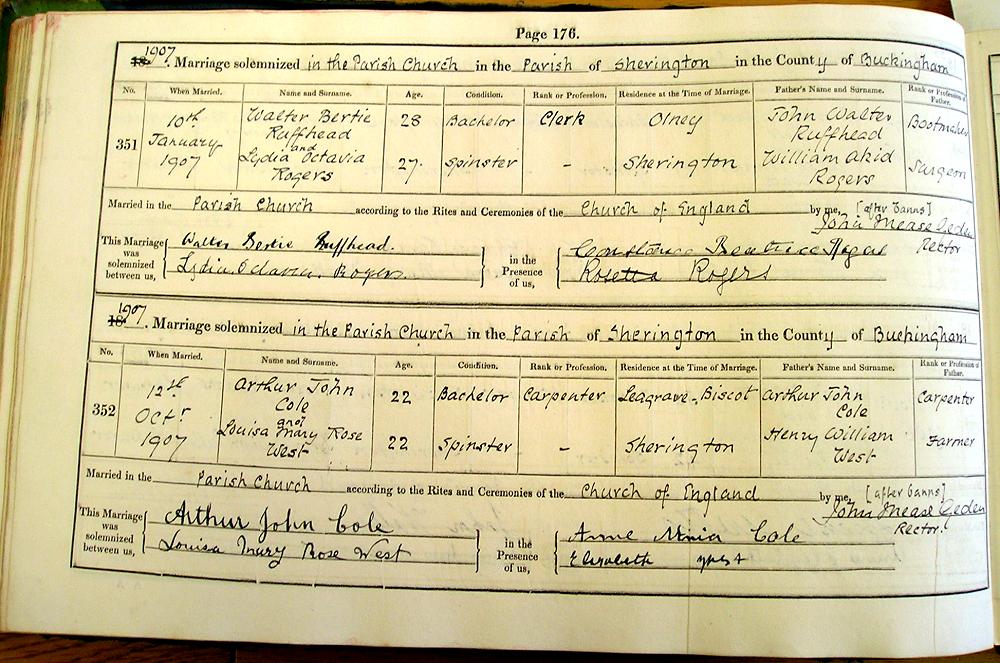 Page 176.
1907. Marriage solemnized in the Parish Church in the Parish of Sherington in the County of Buckingham
No. When Married. Name and Surname. Age. Condition. Rank or Profession. Residence at the Time of Marriage. Father's Name and Surname. Rank or Profession of Father.
351 10th January 1907 Walter Bertie Ruffhead 28 Bachelor Clerk Olney John Walter Ruffhead Bootmaker
and
Lydia Octavia Rogers 27. Spinster – Sherington William Rogers Surgeon
Married in the Parish Church according to the Rites and Ceremonies of the Church of England by me, [after banns]
John Mease
Rector
This Marriage was solemnized between us,
Walter Bertie Ruffhead.
Lydia Octavia Rogers
in the Presence of us,
Constance Beatrice
Rosetta Rogers
1907. Marriage solemnized in the Parish Church in the Parish of Sherington in the County of Buckingham
No. When Married. Name and Surname. Age. Condition. Rank or Profession. Residence at the Time of Marriage. Father's Name and Surname. Rank or Profession of Father.
352 12th Octr 1907 Arthur John Cole 22 Bachelor Carpenter Leagrave, Biscot Arthur John Cole Carpenter
and
Louisa Mary Rose West 22 Spinster – Sherington Henry William West Farmer
Married in the Parish Church according to the Rites and Ceremonies of the Church of England by me, [after banns]
John Mease
Rector.
This Marriage was solemnized between us,
Arthur John Cole
Louisa Mary Rose West
in the Presence of us,
Annie Cole
Elizabeth